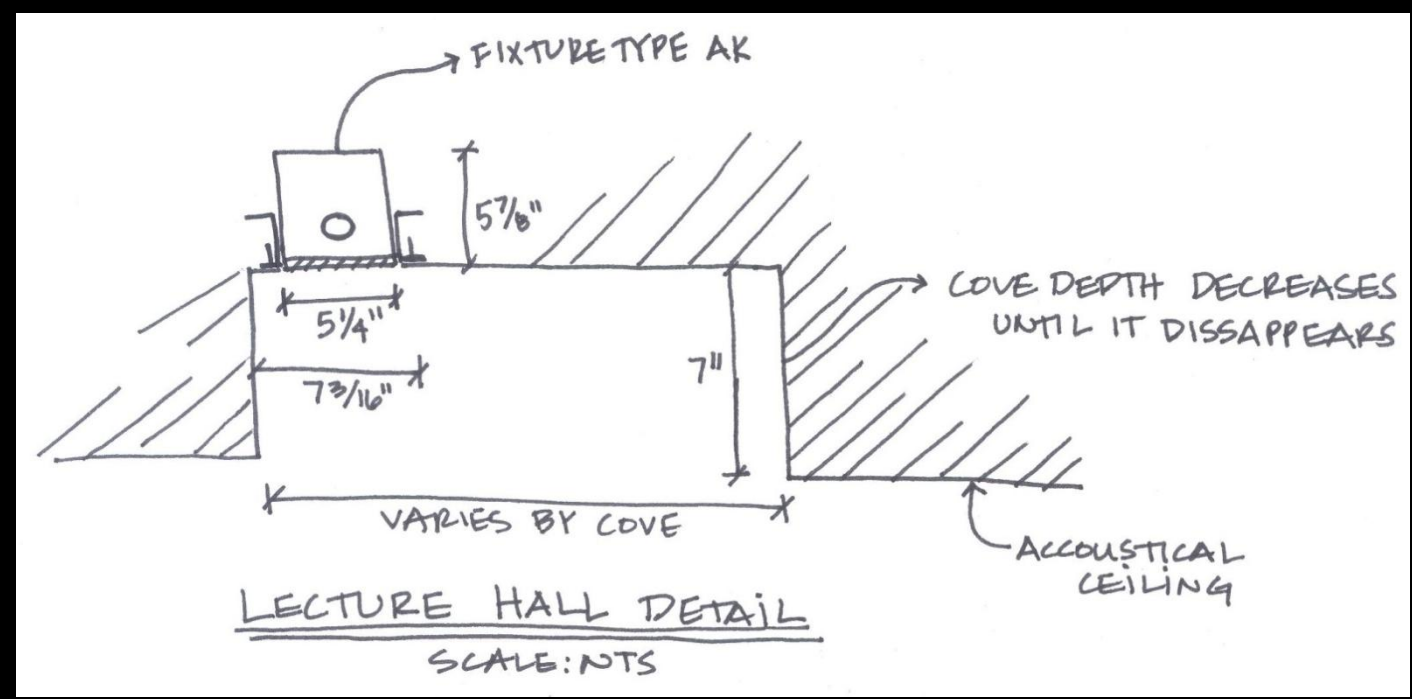 FIXTURE TYPE AK
5 7/8"
5 1/4"
7 3/16"
7"
COVE DEPTH DECREASES
UNTIL IT DISSAPPEARS
VARIES BY COVE
ACCOUSTICAL
CEILING
LECTURE HALL DETAIL
SCALE: NTS